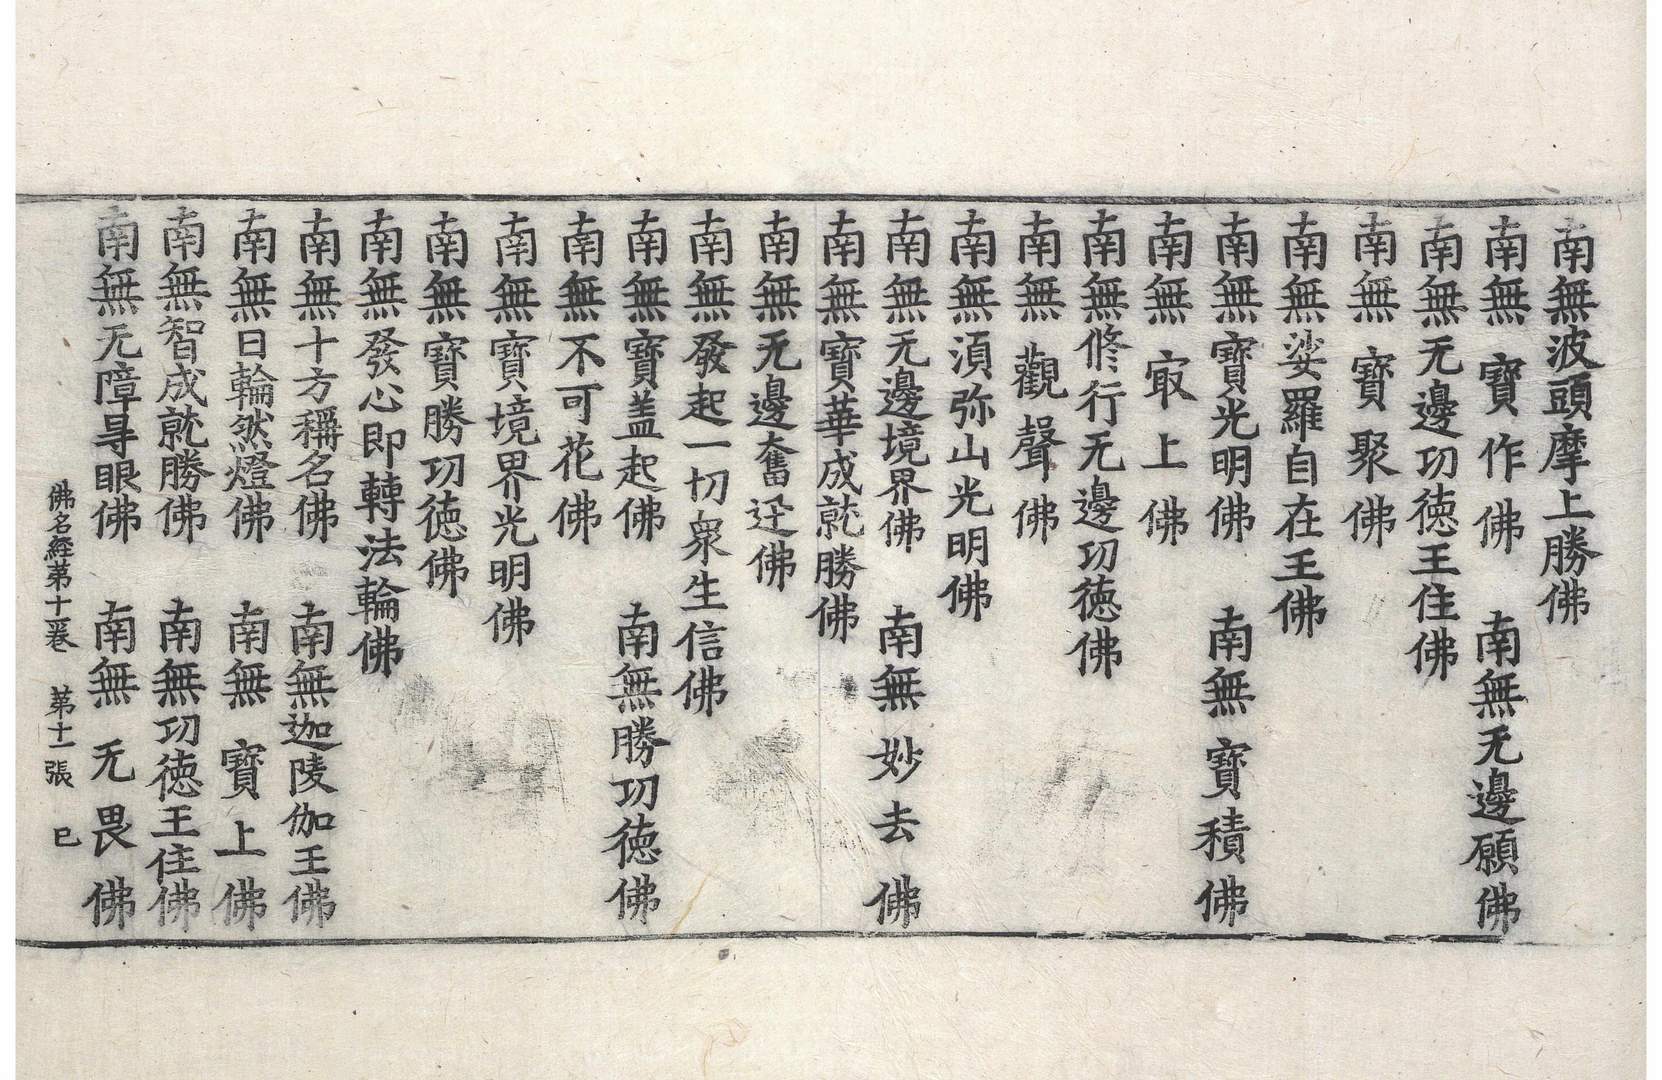 南無波頭摩上勝佛
南無寶作佛　南無无邊願佛
南無无邊功徳王住佛
南無寶聚佛
南無娑羅自在王佛
南無寶光明佛　南無寶積佛
南無㝡上佛
南無修行无邊功徳佛
南無觀聲佛
南無湏弥山光明佛
南無无邊境界佛　南無妙去佛
南無寶華成就勝佛
南無无邊奮迅佛
南無發起一切衆生信佛
南無寶盖起佛　南無勝功徳佛
南無不可花佛
南無寶境界光明佛
南無寶勝功徳佛
南無發心即轉法輪佛
南無十方稱名佛　南無迦陵伽王佛
南無日輪然燈佛　南無寶上佛
南無智成就勝佛　南無功徳王住佛
南無无障㝵眼佛　南無无畏佛
佛名経苐十二巻　苐十一張　巳